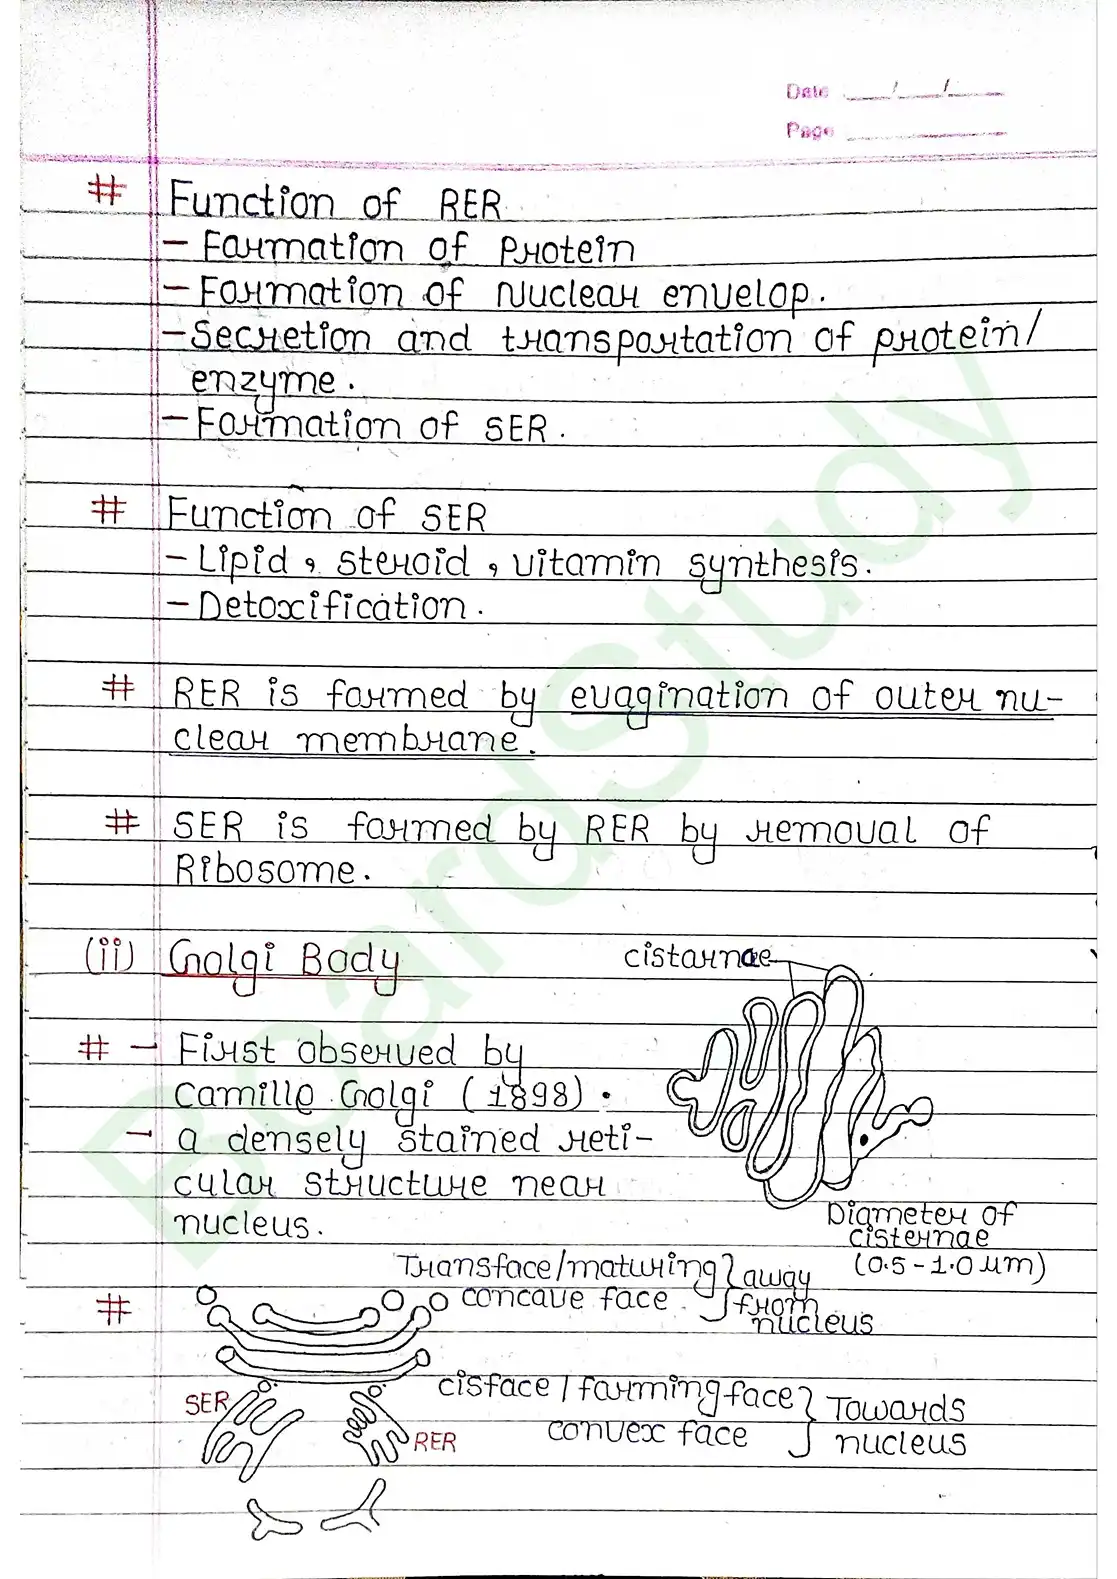 Date __/__/__
Page ______
# Function of RER
- Formation of Protein
- Formation of Nuclear envelop.
- Secretion and transportation of protein/
enzyme.
- Formation of SER.
# Function of SER
- Lipid, steroid, vitamin synthesis.
- Detoxification.
# RER is formed by evagination of outer nu-
clear membrane.
# SER is formed by RER by removal of
Ribosome.
(ii) Golgi Body
cistarnae
# - First observed by
Camille Golgi (1898).
- a densely stained reti-
cular structure near
nucleus.
Diameter of
cisternae
(0.5-1.0 μm)
#
Transface/maturing } away
concave face } from
nucleus
SER
RER
cisface/farming face } Towards
convex face } nucleus
BoardStudy